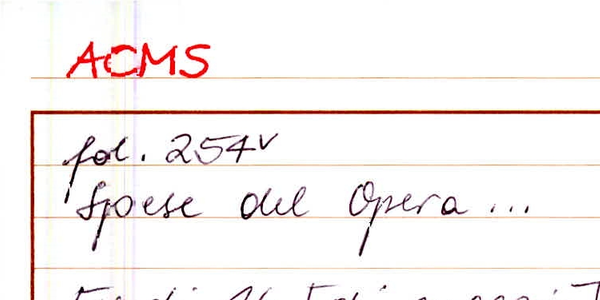 ACMS
fol. 254v
Spese del Opera...